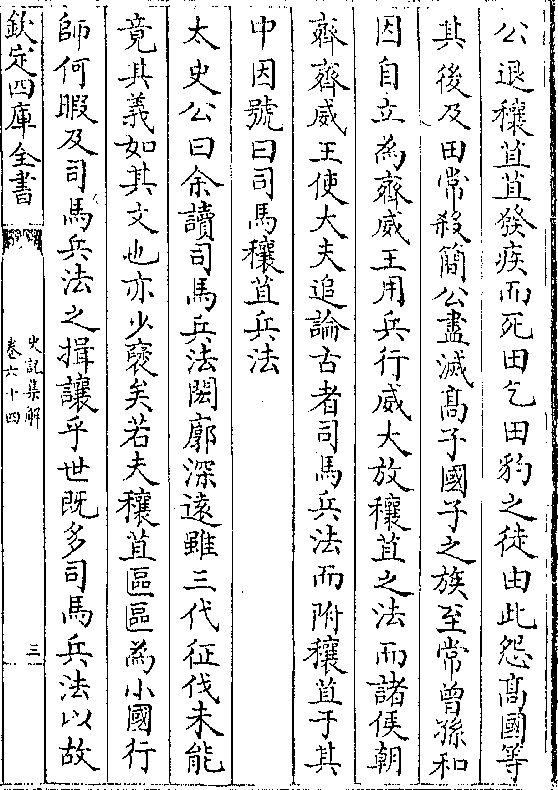 公退穰苴苴發疾而死田乞田豹之徒由此怨髙國等
其後及田常殺簡公盡滅髙子國子之族至常曾孫和
因自立為齊威王用兵行威大放穰苴之法而諸侯朝
齊齊威王使大夫追論古者司馬兵法而附穰苴于其
中因號曰司馬穰苴兵法
太史公曰余讀司馬兵法閎廓深遠雖三代征伐未能
竟其義如其文也亦少襃矣若夫穰苴區區為小國行
師何暇及司馬兵法之揖讓乎世既多司馬兵法以故
欽定四庫全書
史記集解
卷六十四
三